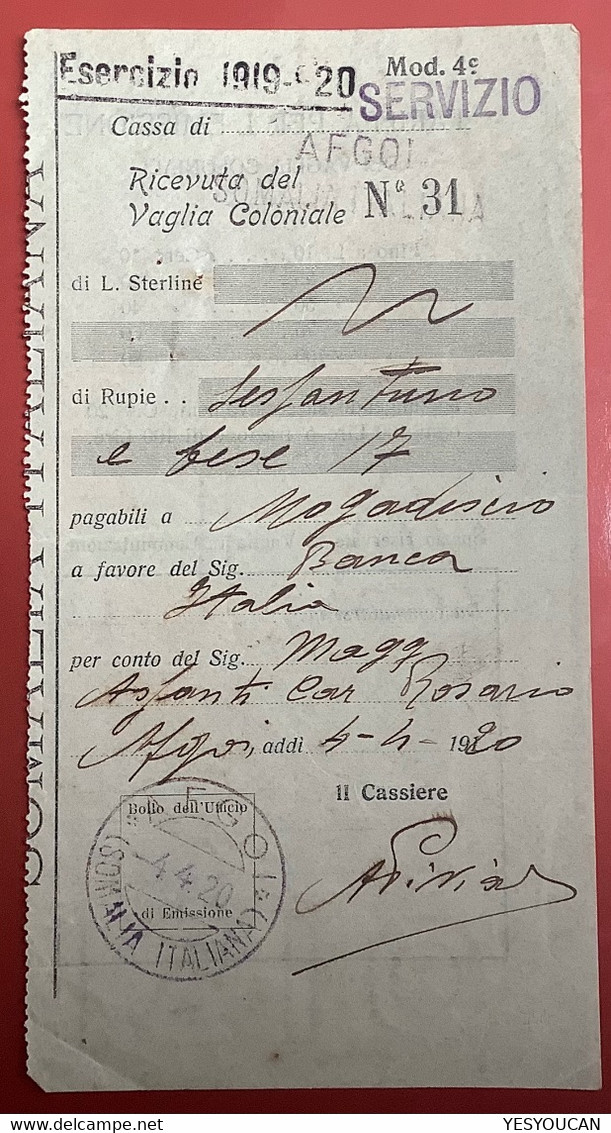 Esercizio 1919-920 Mod. 4º
SERVIZIO
Cassa di
AFGOI
Ricevuta del
Vaglia Coloniale Nº 31
di L. Sterline
di Rupie . . Sessantuno
e bese 17
pagabili a Mogadiscio
a favore del Sig. Banca
Italia
per conto del Sig. Magg
Car Rosario
Afgoi, addì 4-4-1920
Il Cassiere
Bollo dell'Ufficio
AFGOI
4.4.20
di Emissione
(SOMALIA ITALIANA)
SOMALIA ITALIANA
YESYOUCAN